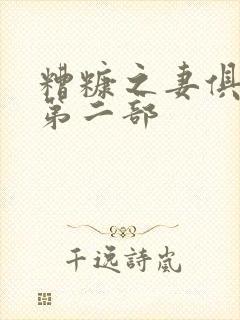 糟糠之妻俱
第二部
千逸詩嵐